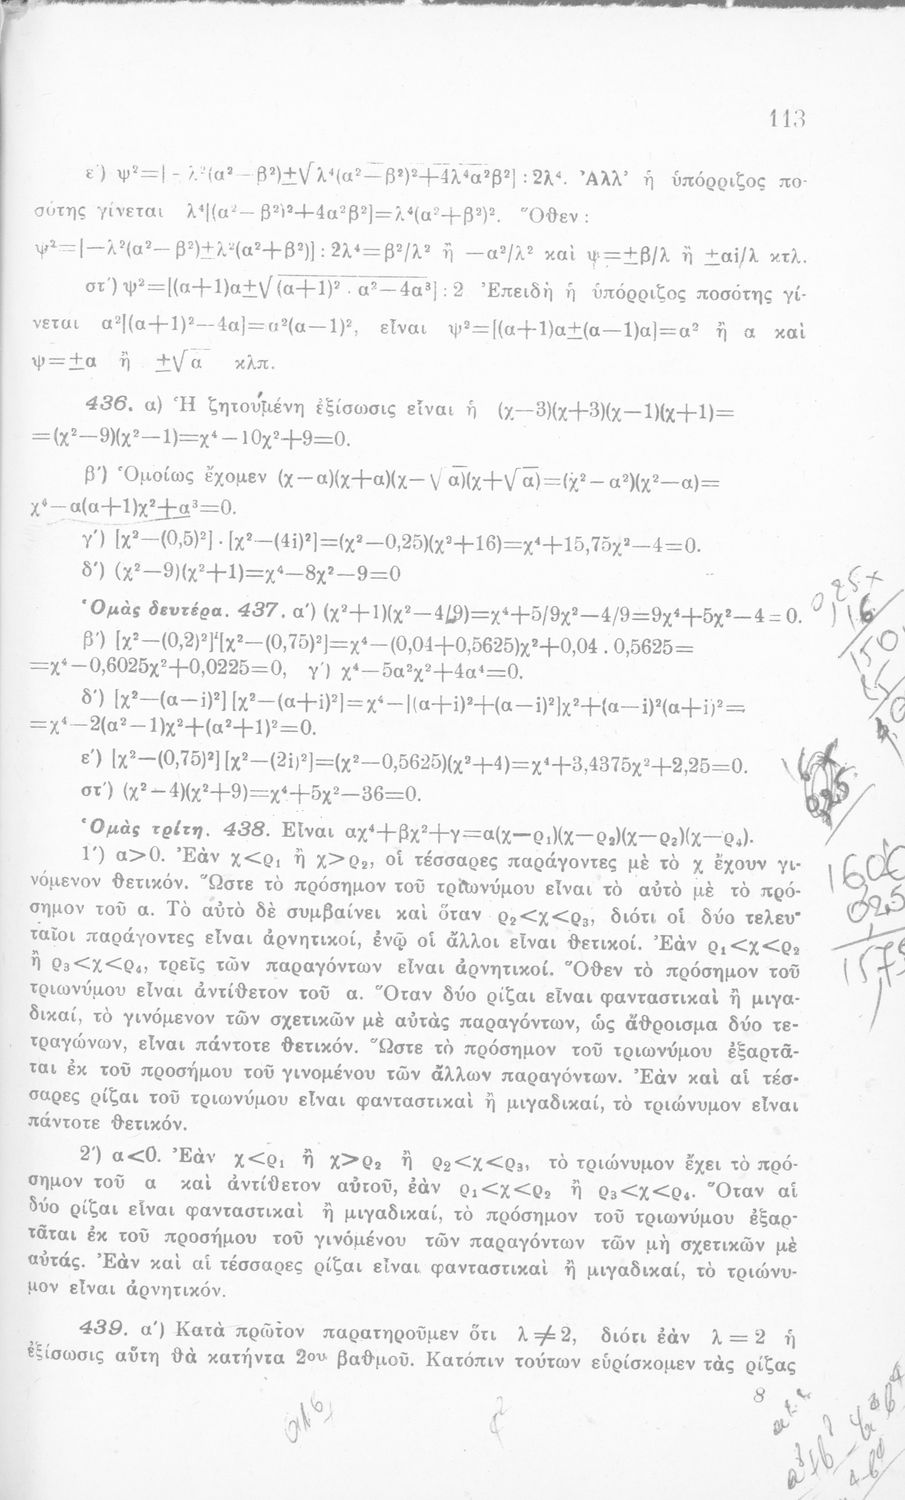 113
ε΄) ψ²=[-λ²(α²-β²)±√λ⁴(α²-β²)²+4λ⁴α²β²] : 2λ⁴. Ἀλλ' ἡ ὑπόρριζος πο-
σότης γίνεται λ⁴[(α²-β²)²+4α²β²]=λ⁴(α²+β²)². Ὅθεν :
ψ²=[-λ²(α²-β²)±λ²(α²+β²)] : 2λ⁴=β²/λ² ἢ -α²/λ² καὶ ψ=±β/λ ἢ ±αi/λ κτλ.
στ΄) ψ²=[(α+1)α±√(α+1)² . α²-4α³] : 2 Ἐπειδὴ ἡ ὑπόρριζος ποσότης γί-
νεται α²[(α+1)²-4α]=α²(α-1)², εἶναι ψ²=[(α+1)α±(α-1)α]=α² ἢ α καὶ
ψ=±α ἢ ±√α κλπ.
436. α) Ἡ ζητουμένη ἐξίσωσις εἶναι ἡ (χ-3)(χ+3)(χ-1)(χ+1)=
=(χ²-9)(χ²-1)=χ⁴-10χ²+9=0.
β΄) Ὁμοίως ἔχομεν (χ-α)(χ+α)(χ-√α)(χ+√α)=(χ²-α²)(χ²-α)=
χ⁴-α(α+1)χ²+α³=0.
γ΄) [χ²-(0,5)²] . [χ²-(4i)²]=(χ²-0,25)(χ²+16)=χ⁴+15,75χ²-4=0.
δ΄) (χ²-9)(χ²+1)=χ⁴-8χ²-9=0
Ὁμὰς δευτέρα. 437. α΄) (χ²+1)(χ²-4/9)=χ⁴+5/9χ²-4/9=9χ⁴+5χ²-4=0.
β΄) [χ²-(0,2)²][χ²-(0,75)²]=χ⁴-(0,04+0,5625)χ²+0,04 . 0,5625=
=χ⁴-0,6025χ²+0,0225=0, γ΄) χ⁴-5α²χ²+4α⁴=0.
δ΄) [χ²-(α-i)²] [χ²-(α+i)²]=χ⁴-[(α+i)²+(α-i)²]χ²+(α-i)²(α+i)²=
=χ⁴-2(α²-1)χ²+(α²+1)²=0.
ε΄) [χ²-(0,75)²] [χ²-(2i)²]=(χ²-0,5625)(χ²+4)=χ⁴+3,4375χ²+2,25=0.
στ΄) (χ²-4)(χ²+9)=χ⁴+5χ²-36=0.
Ὁμὰς τρίτη. 438. Εἶναι αχ⁴+βχ²+γ=α(χ-ρ₁)(χ-ρ₂)(χ-ρ₂)(χ-ρ₄).
1΄) α>0. Ἐὰν χ<ρ₁ ἢ χ>ρ₂, οἱ τέσσαρες παράγοντες μὲ τὸ χ ἔχουν γι-
νόμενον θετικόν. Ὥστε τὸ πρόσημον τοῦ τριωνύμου εἶναι τὸ αὐτὸ μὲ τὸ πρό-
σημον τοῦ α. Τὸ αὐτὸ δὲ συμβαίνει καὶ ὅταν ρ₂<χ<ρ₃, διότι οἱ δύο τελευ-
ταῖοι παράγοντες εἶναι ἀρνητικοί, ἐνῷ οἱ ἄλλοι εἶναι θετικοί. Ἐὰν ρ₁<χ<ρ₂
ἢ ρ₃<χ<ρ₄, τρεῖς τῶν παραγόντων εἶναι ἀρνητικοί. Ὅθεν τὸ πρόσημον τοῦ
τριωνύμου εἶναι ἀντίθετον τοῦ α. Ὅταν δύο ρίζαι εἶναι φανταστικαὶ ἢ μιγα-
δικαί, τὸ γινόμενον τῶν σχετικῶν μὲ αὐτὰς παραγόντων, ὡς ἄθροισμα δύο τε-
τραγώνων, εἶναι πάντοτε θετικόν. Ὥστε τὸ πρόσημον τοῦ τριωνύμου ἐξαρτᾶ-
ται ἐκ τοῦ προσήμου τοῦ γινομένου τῶν ἄλλων παραγόντων. Ἐὰν καὶ αἱ τέσ-
σαρες ρίζαι τοῦ τριωνύμου εἶναι φανταστικαὶ ἢ μιγαδικαί, τὸ τριώνυμον εἶναι
πάντοτε θετικόν.
2΄) α<0. Ἐὰν χ<ρ₁ ἢ χ>ρ₂ ἢ ρ₂<χ<ρ₃, τὸ τριώνυμον ἔχει τὸ πρό-
σημον τοῦ α καὶ ἀντίθετον αὐτοῦ, ἐὰν ρ₁<χ<ρ₂ ἢ ρ₃<χ<ρ₄. Ὅταν αἱ
δύο ρίζαι εἶναι φανταστικαὶ ἢ μιγαδικαί, τὸ πρόσημον τοῦ τριωνύμου ἐξαρ-
τᾶται ἐκ τοῦ προσήμου τοῦ γινομένου τῶν παραγόντων τῶν μὴ σχετικῶν μὲ
αὐτάς. Ἐὰν καὶ αἱ τέσσαρες ρίζαι εἶναι φανταστικαὶ ἢ μιγαδικαί, τὸ τριώνυ-
μον εἶναι ἀρνητικόν.
439. α΄) Κατὰ πρῶτον παρατηροῦμεν ὅτι λ≠2, διότι ἐὰν λ = 2 ἡ
ἐξίσωσις αὕτη θὰ κατήντα 2ου βαθμοῦ. Κατόπιν τούτων εὑρίσκομεν τὰς ρίζας
8